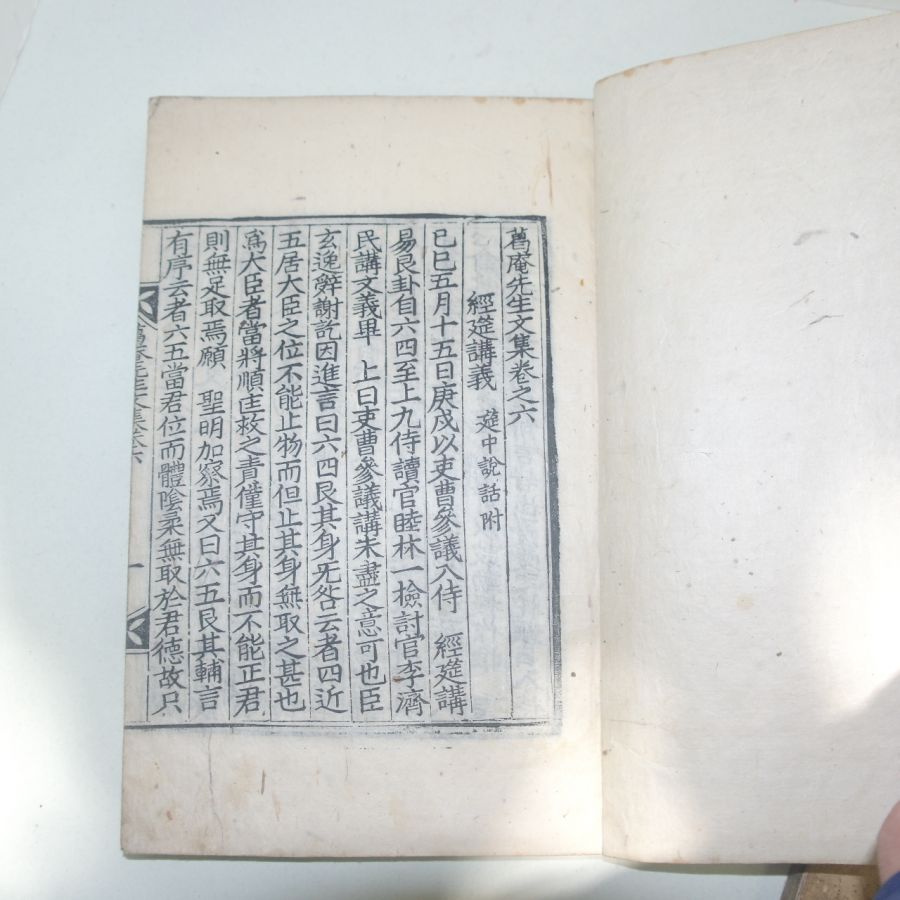 葛庵先生文集卷之六
經筵講義 筵中說話附
己巳五月十五日庚戌以吏曹參議入侍 經筵講
易艮卦自六四至上九侍讀官睦林一檢討官李濟
民講文義畢 上曰吏曹參議講未盡之意可也臣
玄逸辭謝訖因進言曰六四艮其身无咎云者四近
五居大臣之位不能止物而但止其身無取之甚也
爲大臣者當將順匡救之責僅守其身而不能正君
則無足取焉願 聖明加察焉又曰六五艮其輔言
有序云者六五當君位而體陰柔無取於君德故只
葛庵先生文集卷六
一